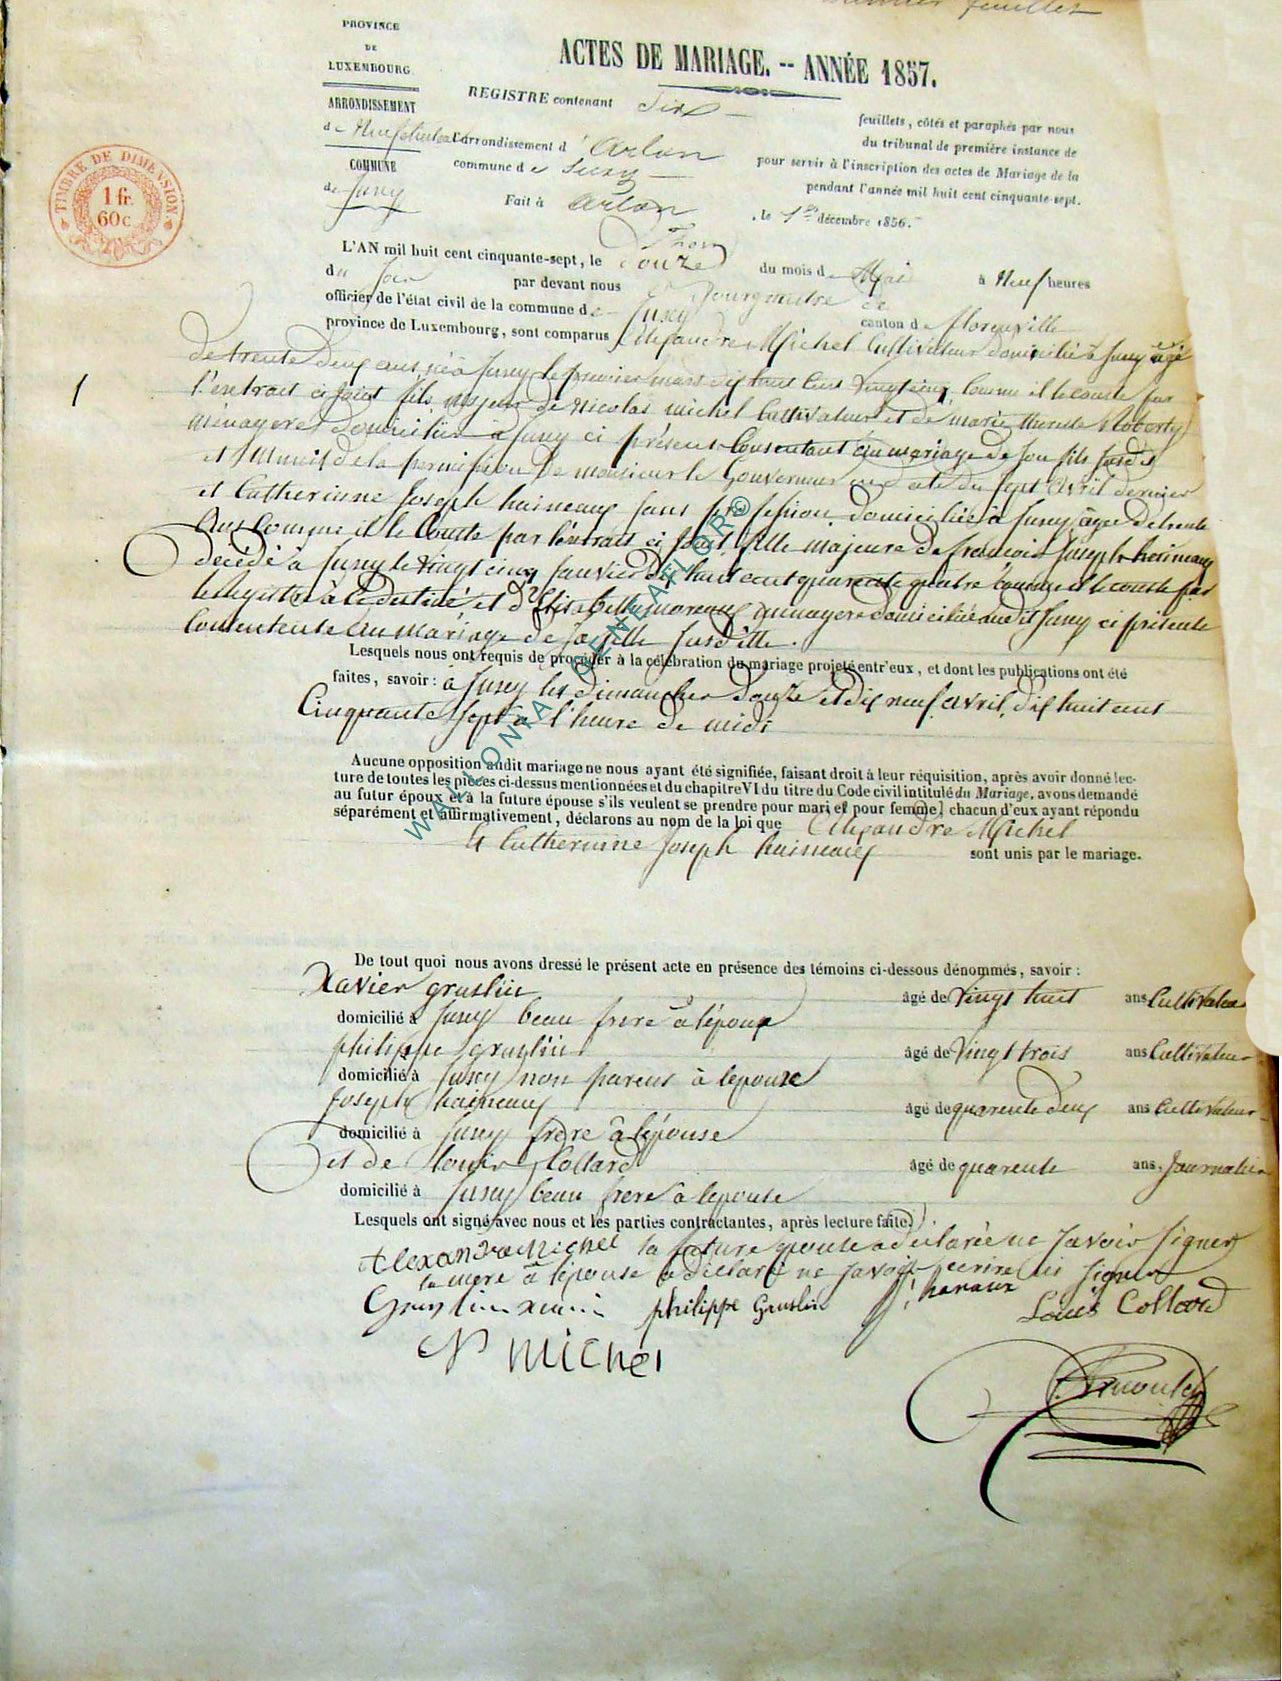 PROVINCE
DE
LUXEMBOURG
ARRONDISSEMENT
de Neufchateau
COMMUNE
de Suxy
TIMBRE DE DIMENSION
1 fr.
60 c.
premier feuillet
ACTES DE MARIAGE. -- ANNÉE 1857.
REGISTRE contenant Six feuillets, côtés et paraphés par nous
du tribunal de première instance de
l'arrondissement d'Arlon pour servir à l'inscription des actes de Mariage de la
commune de Suxy pendant l'année mil huit cent cinquante-sept.
Fait à Arlon , le 1er décembre 1856.
L'AN mil huit cent cinquante-sept, le douze du mois de Mai à Neuf heures
du Soir par devant nous Bourgmestre
officier de l'état civil de la commune de Suxy canton de florenville
province de Luxembourg, sont comparus Alexandre Michel Cultivateur domicilié à Suxy âgé
de trente deux ans né à Suxy le premier mars dix huit cent vingt cinq, comme il le conste par
1
l'extrait ci joint fils majeur de Nicolas michel Cultivateur et de marie therese
ménagere domiciliés à Suxy ci présent Consentant au mariage de Son fils Susdit
et Muni de la permission de monsieur le Gouverneur en date du Sept Avril dernier
et Catherinne Joseph hainaux sans profession, domiciliée à Suxy agée de trente
ans Comme il le Conste par l'extrait ci joint, fille majeure de francois Joseph hainaux
décédé à Suxy le vingt cinq Janvier dix huit cent quarente quatre comme il le conste par
le Registre à ce destiné et d'Elisabeth moreaux menagere domiciliée audit Suxy ci présente
Consentente au mariage de Sa fille Susditte.
Lesquels nous ont requis de procéder à la célébration du mariage projeté entr'eux, et dont les publications ont été
faites, savoir : à Suxy les dimanches douze et dix neuf avril, dix huit cent
Cinquante Sept à l'heure de midi
Aucune opposition audit mariage ne nous ayant été signifiée, faisant droit à leur réquisition, après avoir donné lec-
ture de toutes les pièces ci-dessus mentionnées et du chapitre VI du titre du Code civil intitulé du Mariage, avons demandé
au futur époux et à la future épouse s'ils veulent se prendre pour mari et pour femme, chacun d'eux ayant répondu
séparément et affirmativement, déclarons au nom de la loi que Alexandre Michel
Et Catherinne Joseph hainaux sont unis par le mariage.
De tout quoi nous avons dressé le présent acte en présence des témoins ci-dessous dénommés, savoir :
Xavier gruslin âgé de Vingt huit ans Cultivateur
domicilié à Suxy beau frere à lépoux
philippe gruslin âgé de Vingt trois ans Cultivateur
domicilié à Suxy non parens à lepouse
Joseph hainaux âgé de quarente deux ans Cultivateur
domicilié à Suxy frere à lépouse
et de Louis Collard âgé de quarente ans, Journalier
domicilié à Suxy beau frere à lepouse
Lesquels ont signé avec nous et les parties contractantes, après lecture faite.
Alexandre Michel la future épouse a déclarée ne Savoir Signer
la mere à lépouse a déclaré ne Savoir ecrire ni Signer
Gruslin philippe Gruslin J. hanaux Louis Collard
N Michel
WALLONIA GENEAFLOR©